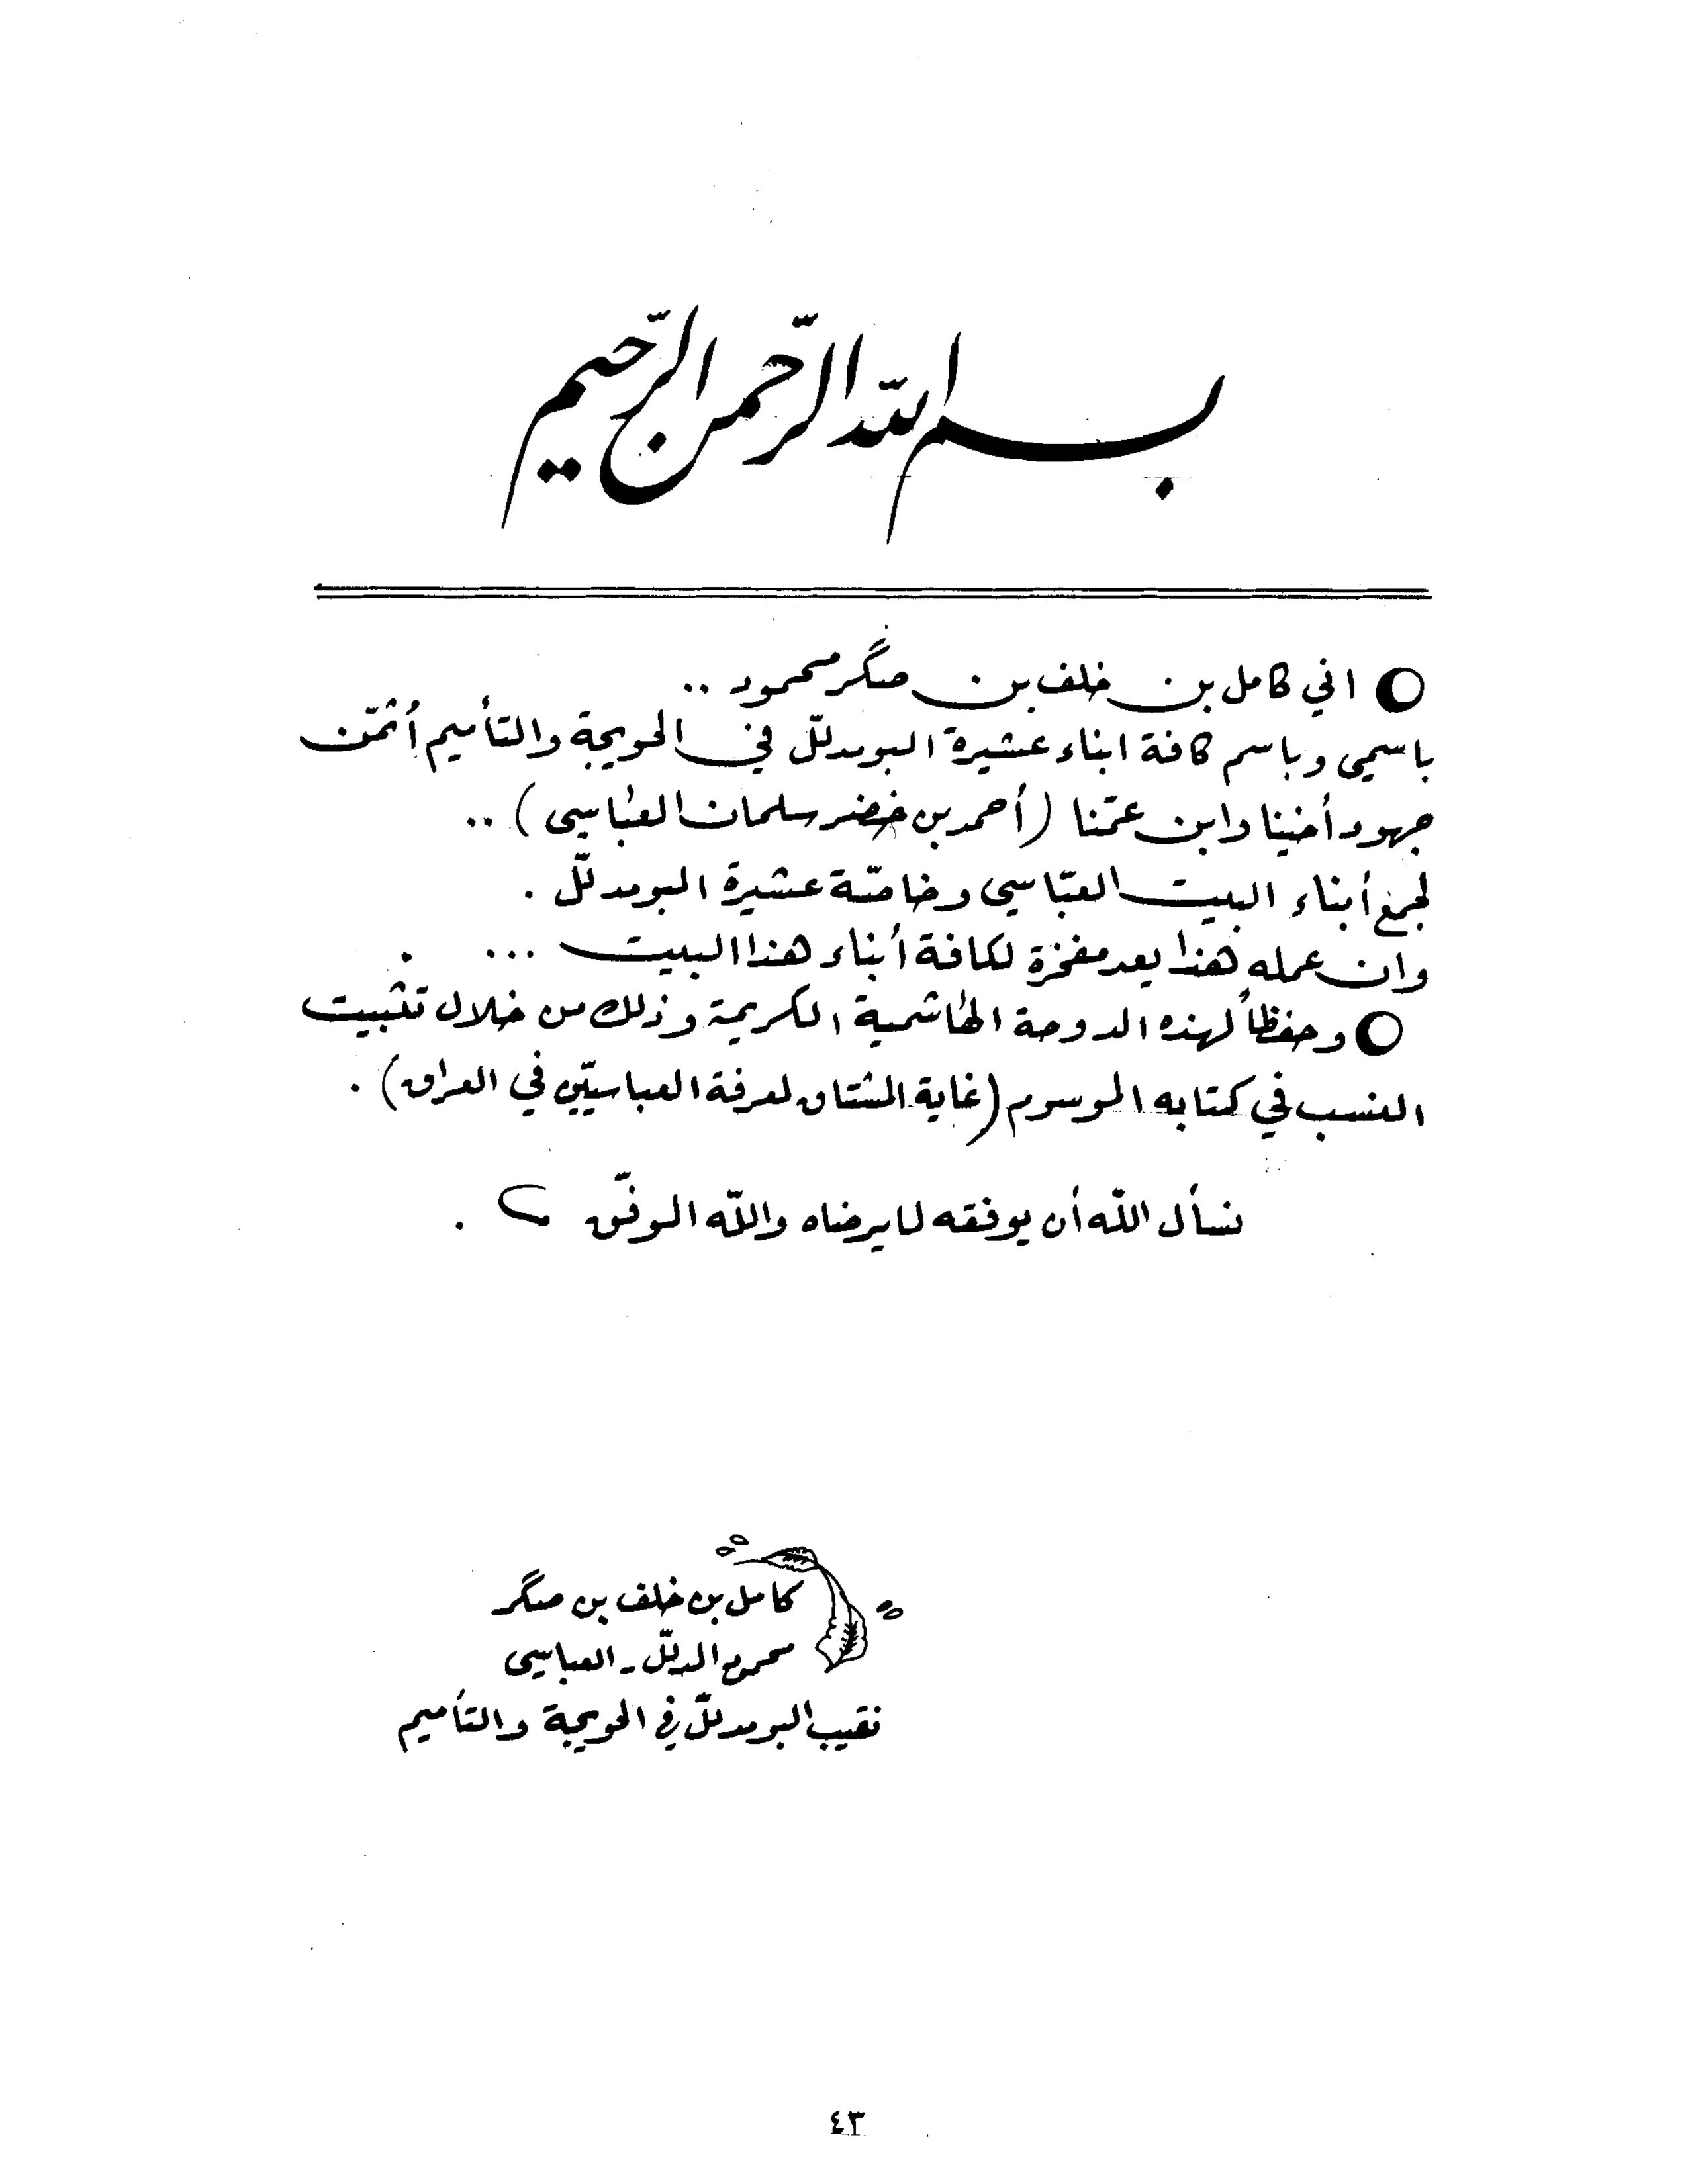 بسم الله الرحمن الرحيم
اني كامل بن خلف بن صگر محمود ..
باسمي وباسم كافة ابناء عشيرة البومدلل في الحويجة والتأميم أثمّن
جهود أخينا وابن عمّنا (أحمد بن خضر سلمان العباسي) ..
لجمع أبناء البيت العبّاسي وخاصّة عشيرة البومدلّل .
وان عمله هذا يعد مفخرة لكافة أبناء هذا البيت ...
وحفظاً لهذه الدوحة الهاشمية الكريمة وذلك من خلال تثبيت
النسب في كتابه الموسوم (غاية المشتاق لمعرفة العباسيّين في العراق) .
نسأل اللّه أن يوفقه لما يرضاه واللّه الموفّق .
كامل بن خلف بن صگر
محمود المدلّل - العباسي
نقيب البومدللّ في الحويجة والتأميم
٤٣